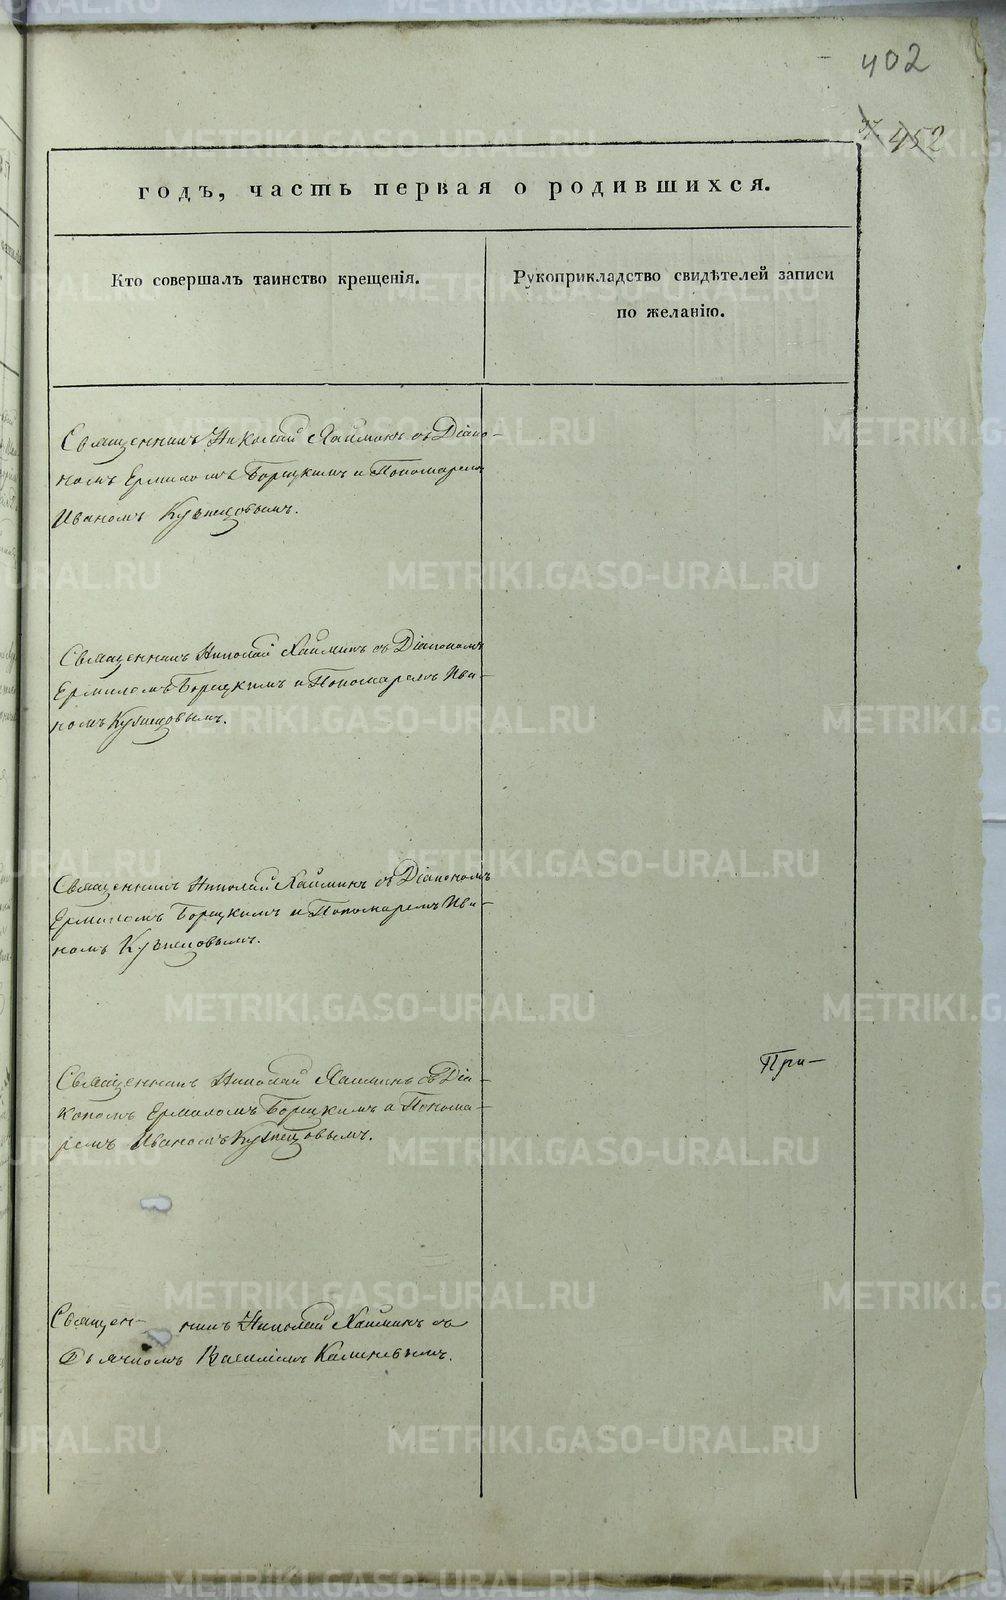 402
452
годъ, часть первая о родившихся.
Кто совершалъ таинство крещенія.
Рукоприкладство свидѣтелей записи
по желанію.
Священникъ Николай съ Діако-
номъ Ермиломъ Борецкимъ и Пономаремъ
Иваномъ Кузнецовымъ.
Священникъ Николай съ Діакономъ
Ермиломъ Борецкимъ и Пономаремъ Ива-
номъ Кузнецовымъ.
Священникъ Николай съ Діакономъ
Ермиломъ Борецкимъ и Пономаремъ Ива-
номъ Кузнецовымъ.
Священникъ Николай съ Діа-
кономъ Ермиломъ Борецкимъ и Понома-
ремъ Иваномъ Кузнецовымъ.
При-
Священ- никъ Николай съ
Дьячкомъ Василіемъ
METRIKI.GASO-URAL.RU